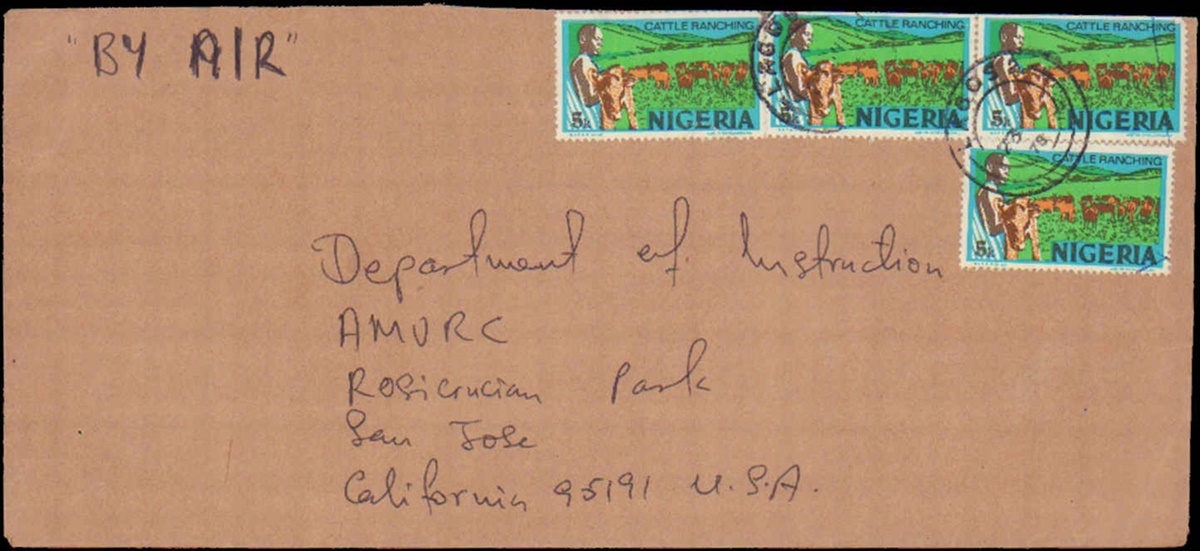 "BY AIR"
CATTLE RANCHING CATTLE RANCHING CATTLE RANCHING
5k NIGERIA 5k NIGERIA 5k NIGERIA
LAGOS
LAGOS
23
78
CATTLE RANCHING
5k NIGERIA
Department of Instruction
AMURC
Rosicrucian Park
San Jose
California 95191 U.S.A.